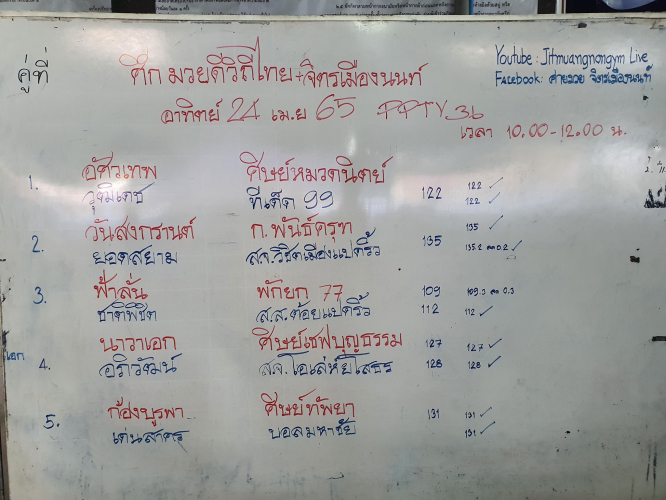 คู่ที่
ศึก มวยดีวิถีไทย+จิตรเมืองนนท์
Youtube : Jitmuangnongym Live
Facebook: ค่ายมวย จิตรเมืองนนท์
อาทิตย์ 24 เม.ย 65 PPTV 36
เวลา 10.00-12.00 น.
1. อัศวเทพ ศิษย์หมวดนิตย์ 122 ✓
วุฒิเดช ทีเด็ด 99 122 122 ✓
วันสงกรานต์ ก.พันธ์ครุฑ 135 ✓
2. ยอดสยาม ส.จ.วิชิตเมืองแปดริ้ว 135 135.2 ลด 0.2 ✓
3. ฟ้าลั่น พักยก 77 109 109.3 ลด 0.3
ชาติพิชิต ส.ส.ต้อยแปดริ้ว 112 112 ✓
นาวาเอก ศิษย์เชฟบุญธรรม 127 127 ✓
เอก 4. อภิวัฒน์ ส.จ.โอเล่ห์ยโสธร 128 128 ✓
5. ก้องบูรพา ศิษย์ทัพยา 131 131 ✓
เด่นสาคร บอลมหาชัย 131 ✓